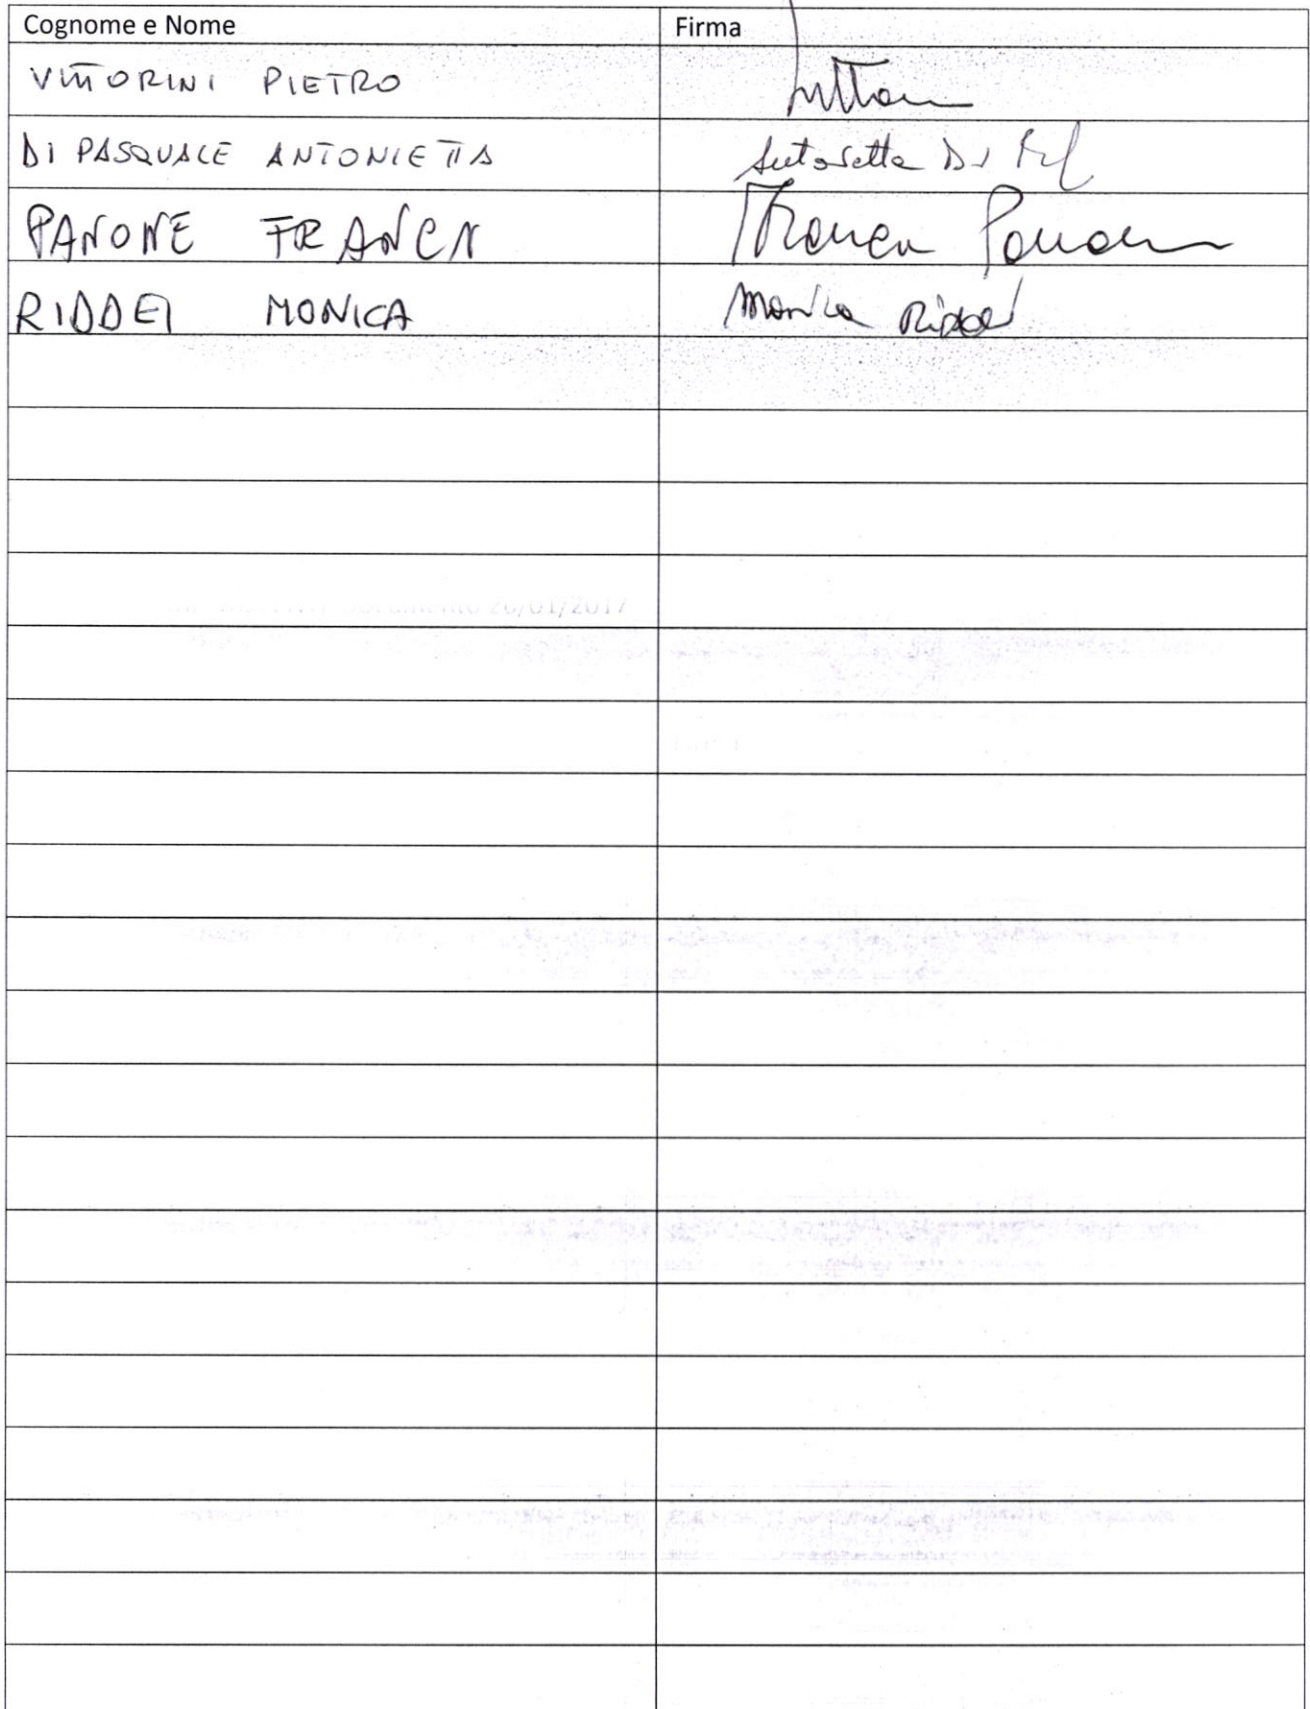 Cognome e Nome Firma
VITTORINI PIETRO
DI PASQUALE ANTONIETTA Antonietta Di
PANONE FRANCA Franca Panone
RIDDEI MONICA Monica Riddei
26/01/2017